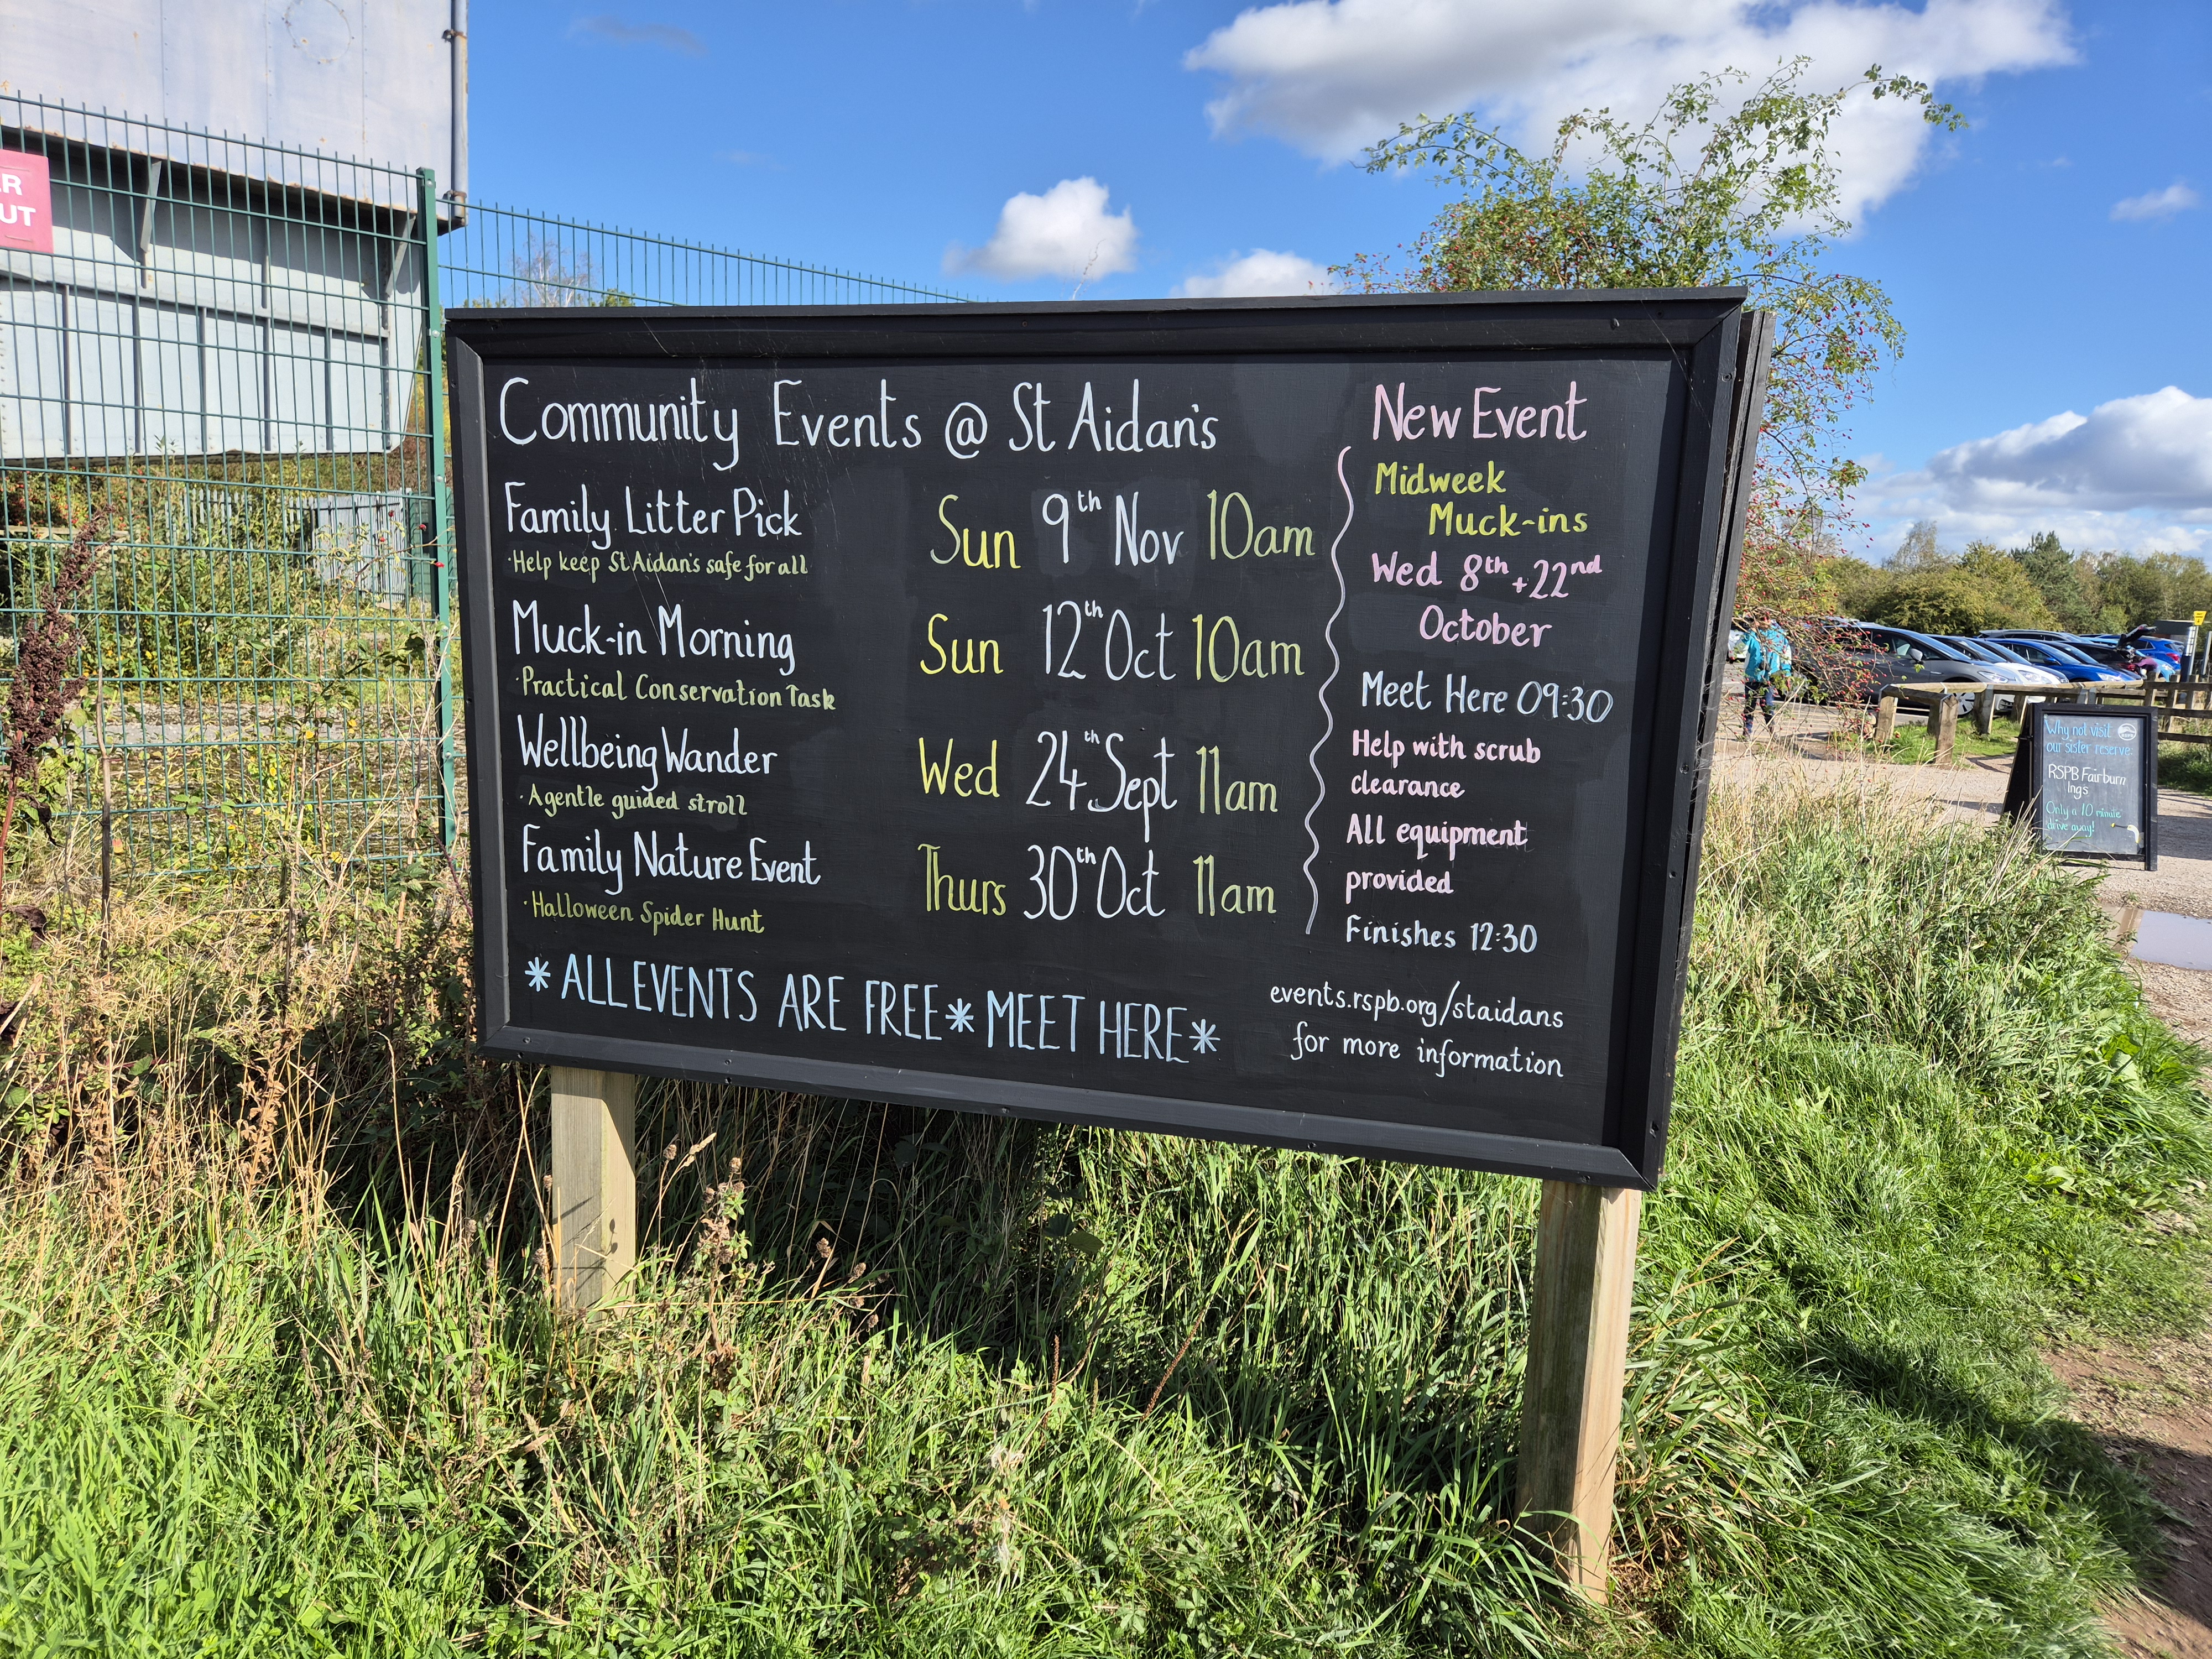 R
UT
Community Events @ St Aidan's
Family Litter Pick Sun 9th Nov 10am
·Help keep St Aidan's safe for all
Muck-in Morning Sun 12th Oct 10am
·Practical Conservation Task
Wellbeing Wander Wed 24th Sept 11am
·A gentle guided stroll
Family Nature Event Thurs 30th Oct 11am
·Halloween Spider Hunt
*ALL EVENTS ARE FREE* MEET HERE*
New Event
Midweek
Muck-ins
Wed 8th + 22nd
October
Meet Here 09:30
Help with scrub
clearance
All equipment
provided
Finishes 12:30
events.rspb.org/staidans
for more information
Why not visit
our sister reserve:
RSPB Fairburn
Ings
Only a 10 minute
drive away!